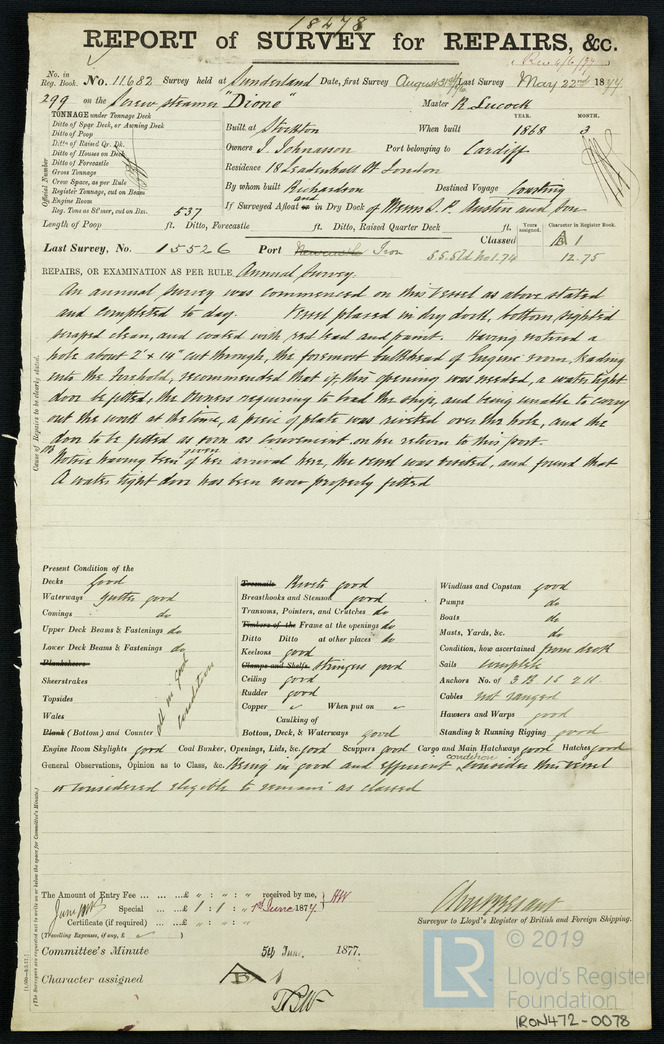 18478
REPORT of SURVEY for REPAIRS, &c.
Rec 4/6/77
No. in Reg. Book. No. 11682 Survey held at Sunderland Date, first Survey August Last Survey May 22nd 1877
299 on the Screw steamer "Dione" Master R Lucock
TONNAGE under Tonnage Deck
Ditto of Spar Deck, or Awning Deck
Ditto of Poop
Ditto of Raised Qr. Dk.
Ditto of Houses on Deck
Ditto of Forecastle
Gross Tonnage
Crew Space, as per Rule
Register Tonnage, cut on Beam
Engine Room
Reg. Tons as St'mer, cut on Bm. 537
Official Number
YEAR. MONTH.
Built at Stockton When built 1868 3
Owners J. Johnasson Port belonging to Cardiff
Residence 18 Leadenhall St London
By whom built Richardson Destined Voyage Coasting
If Surveyed Afloat and in Dry Dock of Messrs S. P. Austin and Son
Length of Poop ft. Ditto, Forecastle ft. Ditto, Raised Quarter Deck ft.
Years assigned. Character in Register Book.
Last Survey, No. 15526 Port Newcastle Iron Classed A 1
12.75
REPAIRS, OR EXAMINATION AS PER RULE Annual Survey.
An annual survey was commenced on this vessel as above stated
and completed to day. Vessel placed in dry dock, bottom sighted
scraped clean, and coated with red lead and paint. Having noticed a
hole about 2' x 14" cut through, the foremost bulkhead of Engine room, leading
into the forehold, recommended that if, this opening was needed, a water tight
door be fitted, the Owners requiring to load the ship, and being unable to carry
out the work at the time, a piece of plate was riveted over the hole, and the
door to be fitted as soon as convenient on her return to this port.
Notice having been given of her arrival here, the vessel was visited, and found that
A water tight door has been now properly fitted
Cause of Repairs to be clearly stated.
Present Condition of the
Decks Good
Waterways Gutter good
Comings do
Upper Deck Beams & Fastenings do
Lower Deck Beams & Fastenings do
Plansheers
Sheerstrakes
Topsides
Wales
Plank (Bottom) and Counter
all in good condition
Treenails Rivets good
Breasthooks and Stemson good
Transoms, Pointers, and Crutches do
Timbers of the Frame at the openings do
Ditto Ditto at other places do
Keelsons good
Clamps and Shelfs stringers good
Ceiling good
Rudder good
Copper When put on
Caulking of
Bottom, Deck, & Waterways good
Windlass and Capstan good
Pumps do
Boats do
Masts, Yards, &c. do
Condition, how ascertained from deck
Sails complete
Anchors No. of 3 B 1 S 2 K
Cables not ranged
Hawsers and Warps good
Standing & Running Rigging good
Engine Room Skylights good Coal Bunker, Openings, Lids, &c. good Scuppers good Cargo and Main Hatchways good Hatches good
General Observations, Opinion as to Class, &c. Being in good and efficient condition consider this vessel
is considered eligible to remain as classed
(The Surveyors are requested not to write on or below the space for Committee's Minute.)
The Amount of Entry Fee ... ... ...£ " : " : " received by me,
Special ... ...£ 1 : 1 : " 1st June 1877.
Certificate (if required) ... ...£ " : " : "
(Travelling Expenses, if any, £ )
Surveyor to Lloyd's Register of British and Foreign Shipping.
Committee's Minute 5th June 1877.
Character assigned A 1
LR
© 2019
Lloyd's Register
Foundation
IRON472-0078